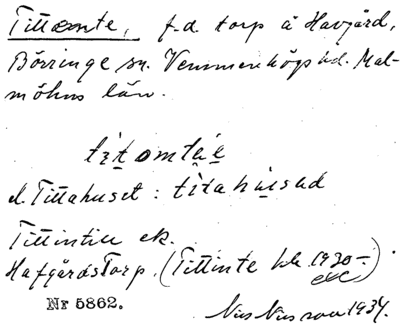 Tittomte, f.d. torp å Havgård,
Börringe sn. Vemmenhögs hd. Mal-
möhus län.
titomtǝ
el. Tittahuset: titahusǝd
Tittintill ek.
Hafgårds Torp. (Tittinte hk 1930
Nr 5862.
Nils Nilsson 1934.